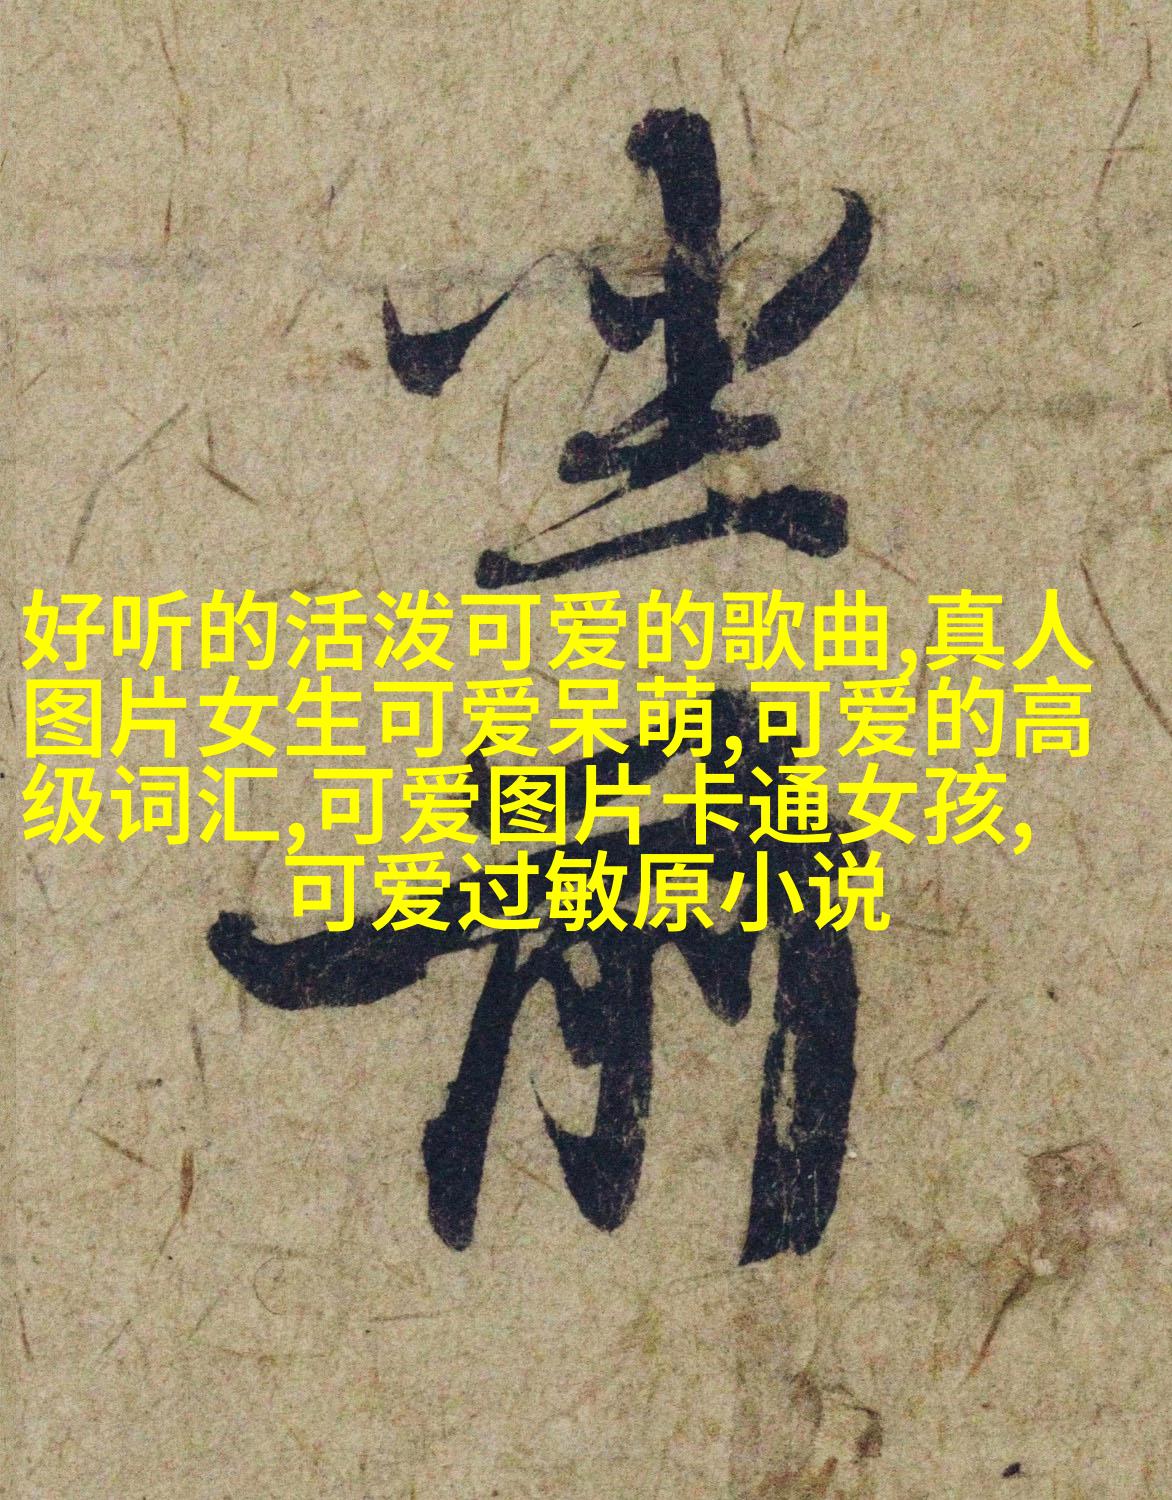 好听的活泼可爱的歌曲,真人
图片女生可爱呆萌,可爱的高
级词汇,可爱图片卡通女孩,
可爱过敏原小说